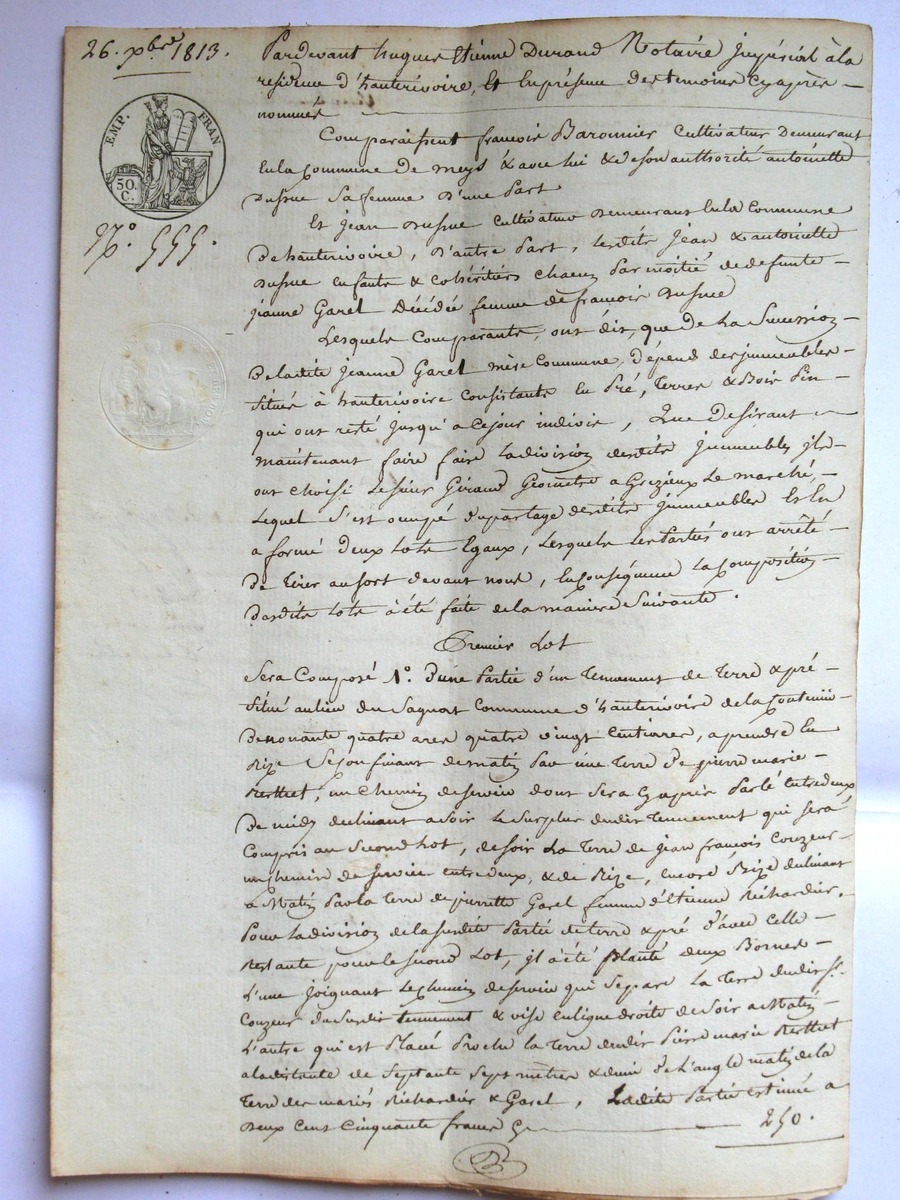 26. xbre 1813.
EMP. FRAN
50.
C.
N.° 555.
Pardevant hugues Etienne Durand Notaire jmpérial à la
residence d'hauterivoire, Et En présence des temoins Cyaprès
nommés
Comparaissent françois Baronnier Cultivateur Demeurant
En la Commune De meys & avec lui & de son authorité antoinette
Dusrue Sa femme D'une Part
Et jean Dusrue Cultivateur Demeurant En la Commune
De hauterivoire, D'autre Part, Lesdits jean & antoinette
Dusrue Enfants & Cohéritiers Chacun Par moitié de defunte
jeanne Garel Décédée femme de françois Dusrue
Lesquels Comparants, ont dit, que De La Succession
De ladite jeanne Garel mère Commune, dépend des jmmeubles
Situés à hauterivoire Consistants En Pré, Terres & Bois Pin
qui ont resté jusqu'a Cejour indivis, Que Desirant
maintenant faire faire La division desdits jmmeubles jls
ont Choisi Le Sieur Giraud Geomètre a Grezieux Le marché
Lequel S'est occupé du partage desdits jmmeubles Et En
a formé Deux Lots Egaux, Lesquels Les Parties ont arrêté
De tirer au sort devant nous, En Conséquence La Composition
Desdits Lots a été faite de la maniere Suivante.
Premier Lot
Sera Composé 1.° D'une Partie d'un Tennement de Terre & pré
Situé au lieu du Sagnat Commune d'hauterivoire de la Contenue
De nonante quatre ares quatre vingt Centiares, a prendre En
Bize Se Confinant de matin Par une Terre De pierre marie
Berthet, un Chemin de service dont Sera Cyaprès Parlé Entredeux
De midy declinant a soir Le Surplus dudit Tennement qui sera
Compris au Second Lot, de soir La Terre de jean françois Couzeur
un Chemin de Service entredeux, & de Bize, encore Bize declinant
à Matin Par la Terre de pierrette Garel femme d'Etienne Richardier.
Pour La division de la Susdite Partie de terre & pré d'avec Celle
Restante pour le second Lot, jl a été Planté deux Bornes
L'une joignant Le Chemin de service qui Separe La Terre dudit
Couzeur du Susdit tennement & vise en ligne droite de Soir a Matin
L'autre qui est Placée Proche la Terre dudit Pierre marie Berthet
a la distance de Septante Sept mètres & demi De L'angle matin de la
Terre des mariés Richardier & Garel, Ladite Partie estimée a
Deux Cent Cinquante francs Cy 250.